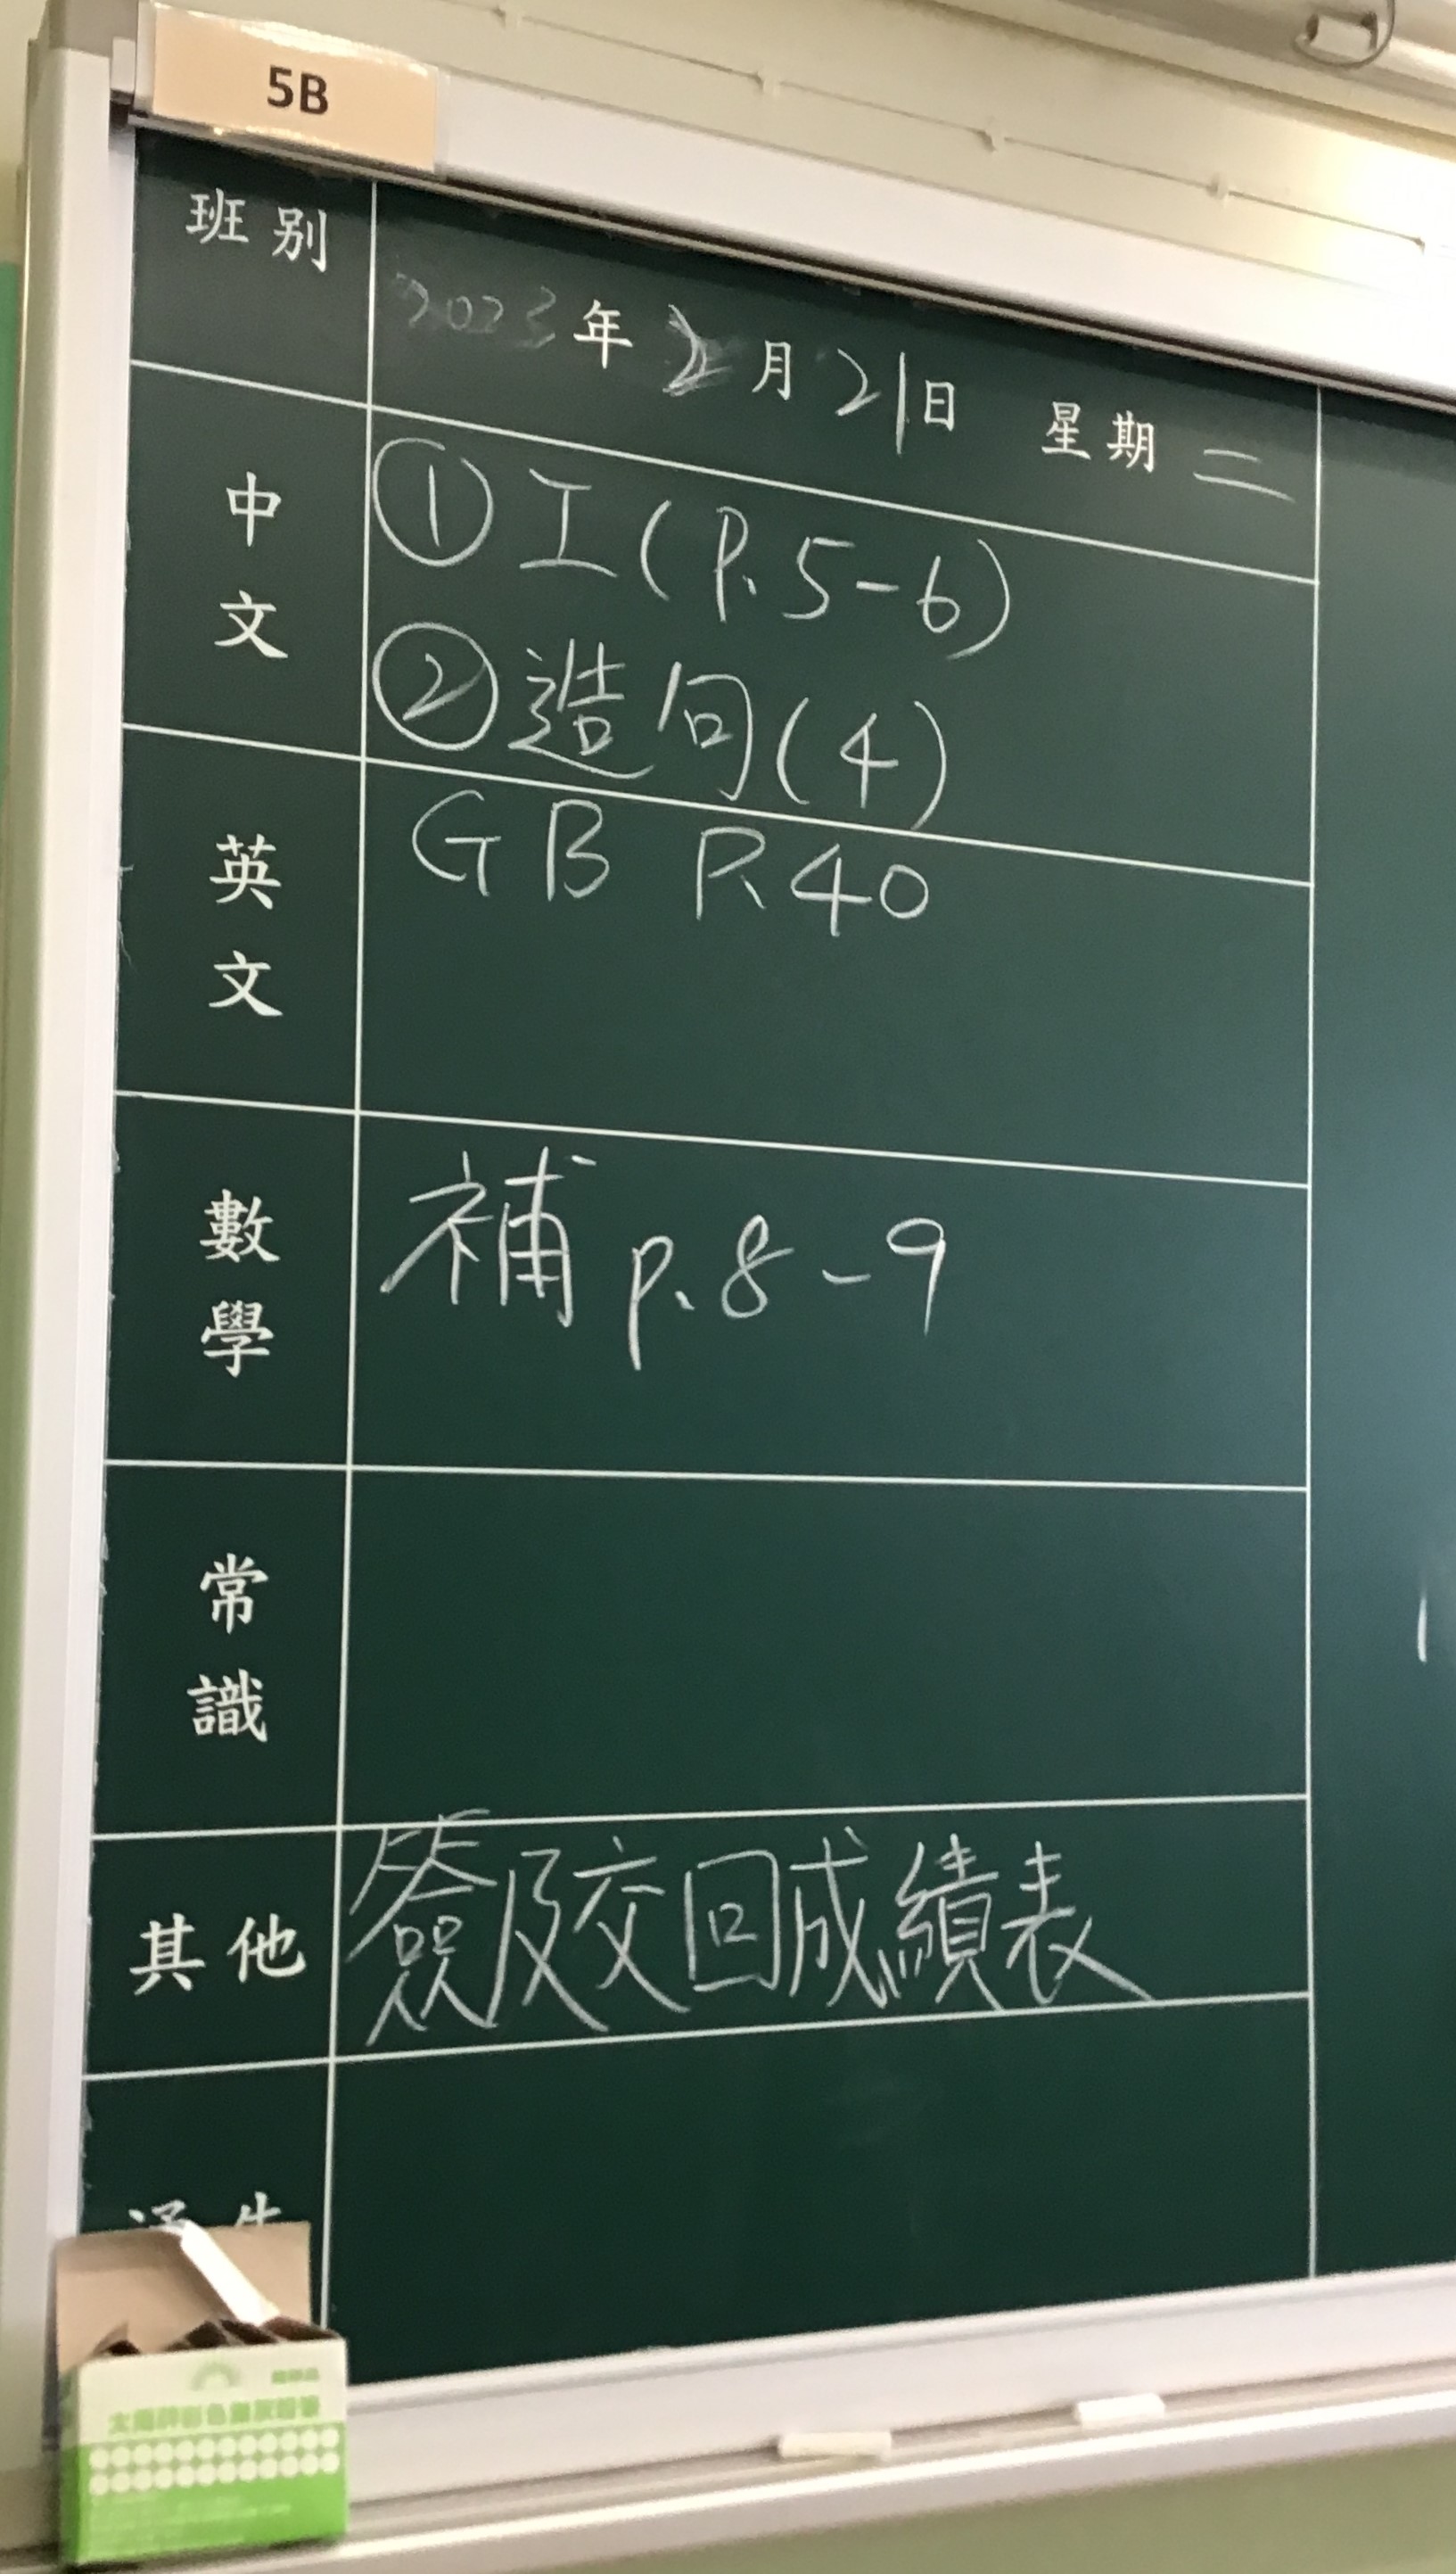 5B
班別
2023年2月21日 星期二
中文
①工(P.5-6)
②造句(4)
英文
GB P.40
數學
補 p.8-9
常識
其他
簽及交回成績表
太陽牌彩色無灰粉筆